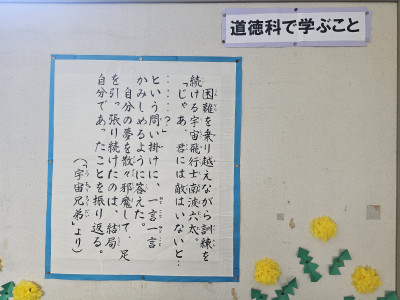 道徳科で学ぶこと
困難を乗り越えながら訓練を
続ける宇宙飛行士南波六太。
「じゃあ、君には敵はいないと…
……?」
という問い掛けに、一言一言
かみしめるように答えた。
自分の夢を散々邪魔して、足
を引っ張り続けたのは、結局
自分であったことを振り返る。
(「宇宙兄弟」より)